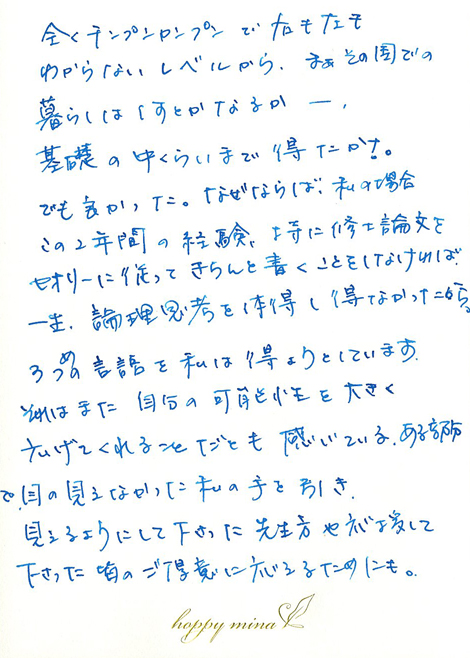 全くチンプンカンプンで右も左も
わからないレベルから、まぁその国での
暮らしはなんとかなるか ー、
基礎の中くらいまで得たか!。
でも良かった。なぜならば、私の場合
この2年間の経験、特に修士論文を
セオリーに従ってきちんと書くことをしなければ
一生、論理思考を体得し得なかったから。
3つめの言語を私は得ようとしています。
それはまた 自分の可能性を大きく
広げてくれることだとも 感じている。ある意味
で、目の見えなかった私の手を引き、
見えるようにして下さった先生方や応援して
下さった皆のご厚意に応えるためにも。
happy mina